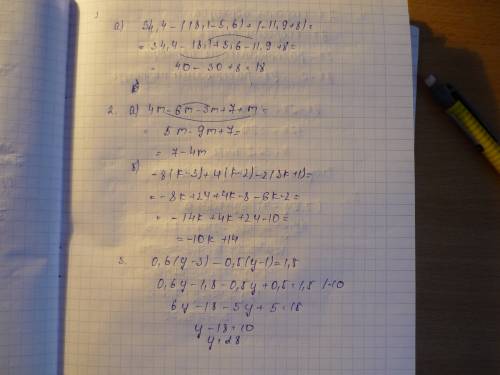 1
a) 34,4-(18,1-5,6)+(-11,9+8)=
= 34,4-18,1+5,6-11,9+8=
= 40-30+8=18
2. a) 4m-6m-3m+7+m=
= 5m-9m+7=
= 7-4m
б)
-8(k-3)+4(k-2)-2(3k+1)=
=-8k+24+4k-8-6k-2=
= -14k+4k+24-10=
=-10k+14
3. 0,6(y-3)-0,5(y-1)=1,5
0,6y-1,8-0,5y+0,5=1,5 |·10
6y-18-5y+5=15
y-18=10
y=28